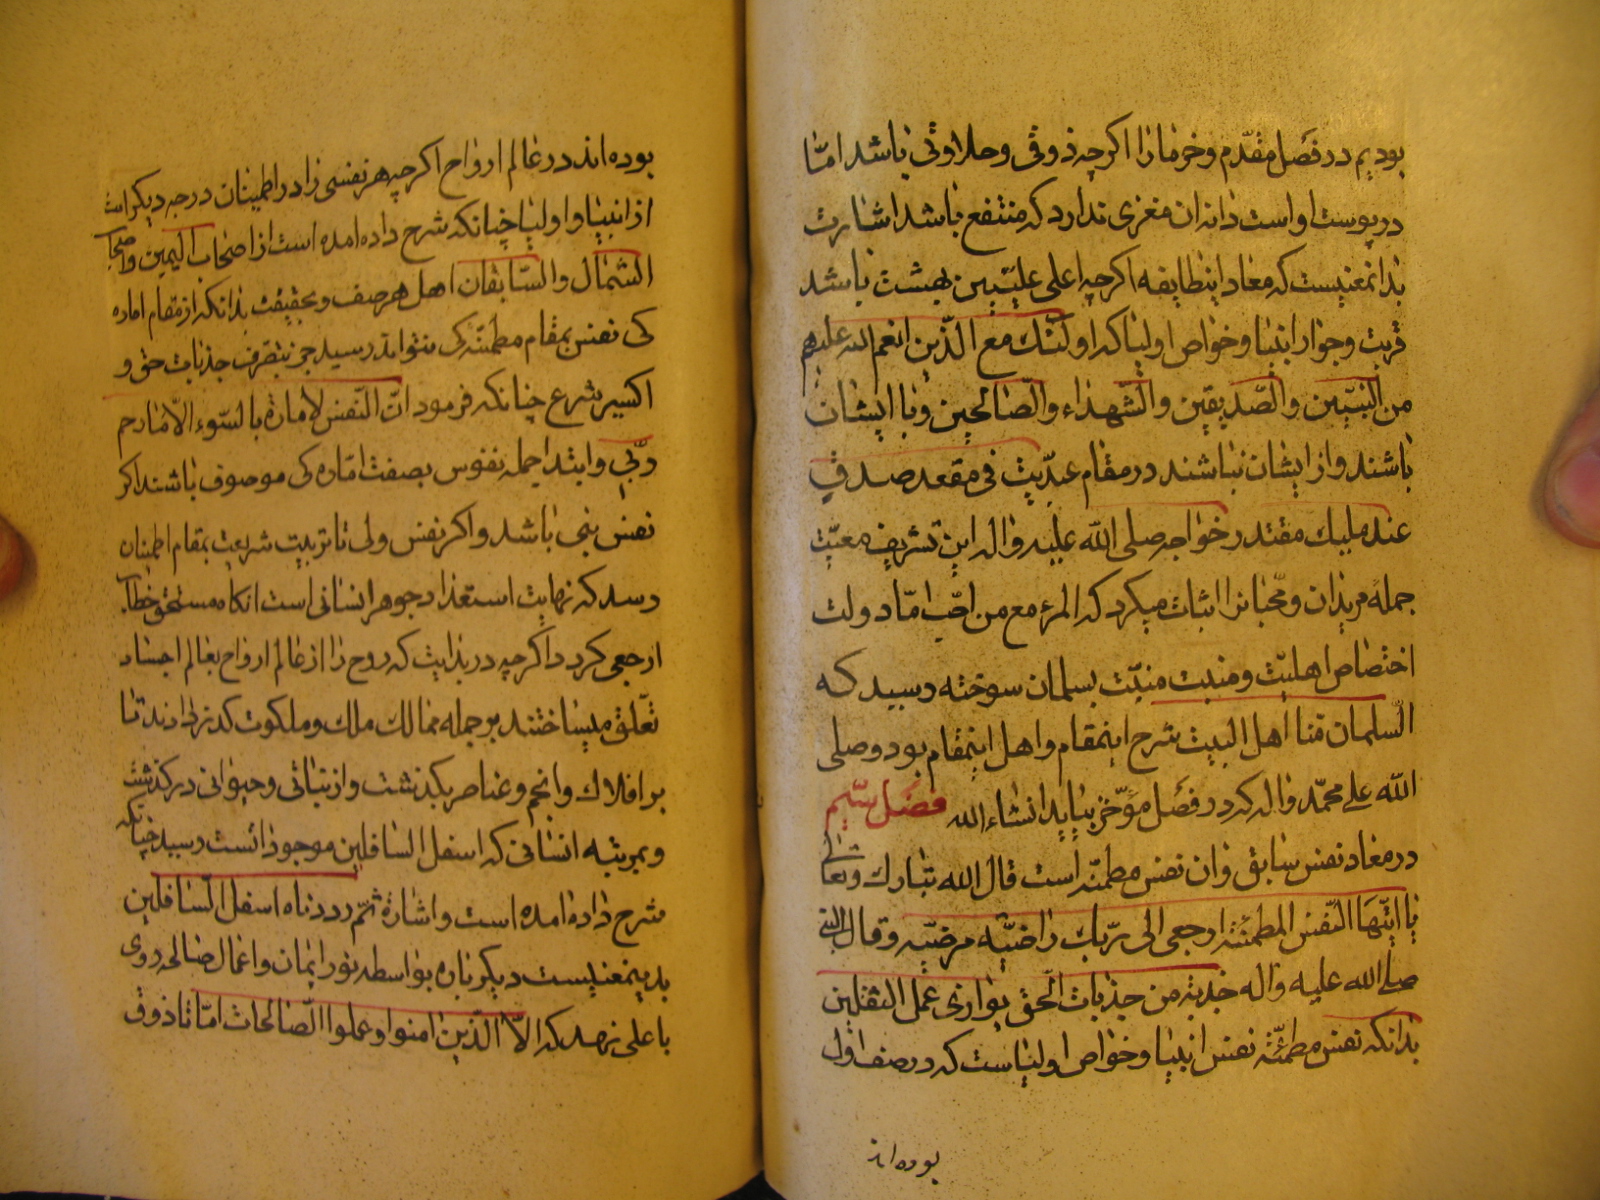 بودیم در فصل مقدّم و خرما را اکرچه ذوقی و حلاوتی باشد امّا
در پوست اواست دانه ان مغزی ندارد که منتفع باشد اشارت
بدانمعنیست که معاد اینطایفه اکرچه اعلی علیّیین بهشت باشد
قربت و جوار انبیا و خواص اولیا که اولئک مع الّذین انعم الله علیهم
من النبیّین والصّدیقین والشّهداء والصّالحین و با ایشان
باشند و از ایشان نباشند در مقام عندیّت فی مقعد صدق
عند ملیک مقتدر خواجه صلی الله علیه واله این تشریف معیّت
جمله مریدان و محبّانرا اثبات میکرد که المرء مع من احبّ امّا دولت
اختصاص اهلیّت و منیّت بسلمان سوخته رسید که
السلمان منّا اهل البیت شرح اینمقام و اهل اینمقام بود وصلی
الله علی محمّد واله که در فصل مؤخّر بیاید انشاء الله فصل سیّم
در معاد نفس سابق وان نفس مطمئنّه است قال الله تبارک وتعالی
یا ایّتها النّفس المطمئنّه ارجعی الی ربّک راضیّه مرضیّه وقال النبی
صلی الله علیه واله جذبة من جذبات الحق یوازی عمل الثقلین
بدانکه نفس مطمئنّه نفس انبیا و خواص اولیاست که در صف اول
بوده اند
بوده اند در عالم ارواح اکرچه هر نفسی را در اطمینان درجه دیکراست
از انبیا و اولیا چنانکه شرح داده امده است از اصحاب الیمین واصحاب
الشمال والسّابقان اهل هر صف و بحقیقت بدانکه از مقام اماره
کی نفس بمقام مطمئنّه کی نتواند رسید جز بتصرف جذبات حق و
اکسیر شرع چنانکه فرمود انّ النّفس لامارة بالسّوء الاّ ما رحم
ربّی و ابتدا جمله نفوس بصفت امّاره کی موصوف باشند اکر
نفس نبی باشد و اکر نفس ولی تا تربیت شریعت بمقام اطمینان
رسد که نهایت استعداد جوهر انسانی است انکاه مستحق خطاب
ارجعی کردد اکرچه در بدایت که روح را از عالم ارواح بعالم اجساد
تعلّق میساختند بر جمله ممالک ملک و ملکوت کذر دادند تا
بر افلاک و انجم و عناصر بکذشت و از نباتی و حیوانی درکذشت
و بمرتبه انسانی که اسفل السافلین موجودانست رسید چنانکه
شرح داده امده است و اشارة ثمّ رددناه اسفل السّافلین
بدینمعنیست دیکر باره بواسطه نور ایمان و اعمال صالحه روی
باعلی نهد که الاّ الّذین امنوا وعملوا الصّالحات امّا تا ذوق